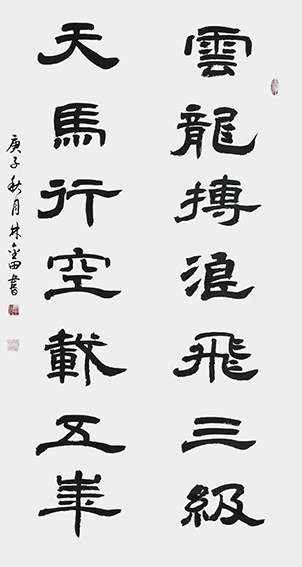 雲龍搏浪飛三級
天馬行空載五
庚子秋月林金田書